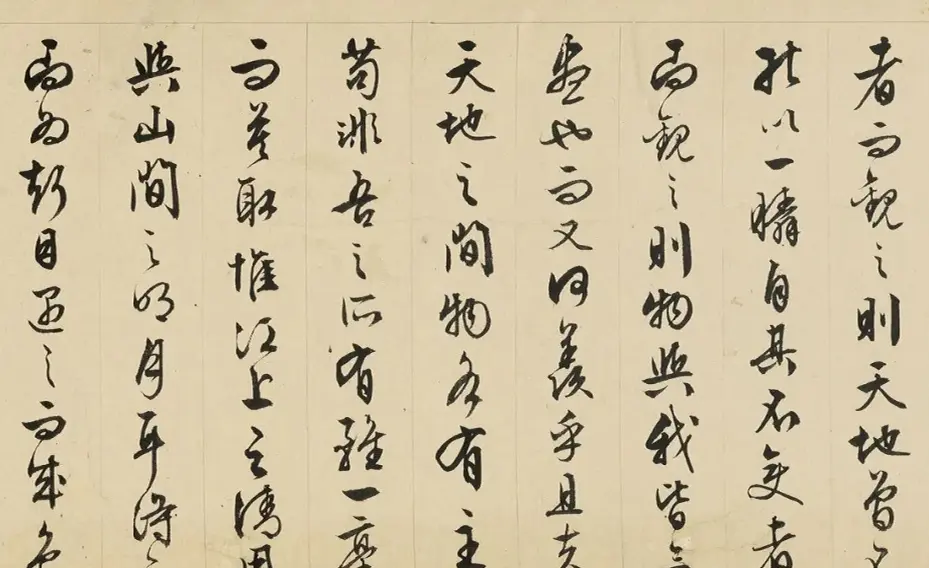 者而觀之則天地曾不
能以一瞬自其不變者
而觀之則物與我皆無
盡也而又何羨乎且夫
天地之間物各有主
苟非吾之所有雖一毫
而莫取惟江上之清風
與山間之明月耳得之
而為聲目遇之而成色